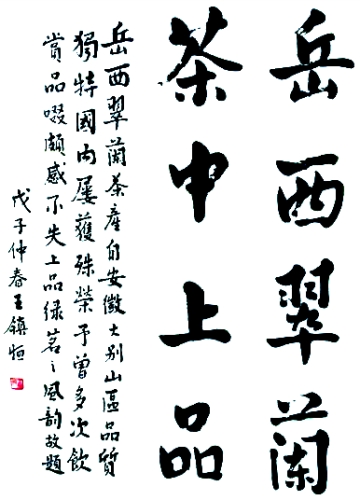 岳西翠蘭
茶中上品
岳西翠蘭茶產自安徽大別山區品質
獨特國内屢獲殊榮予曾多次飲
賞品啜頗感不失上品绿茗之風韵故題
戊子仲春王鎮恒